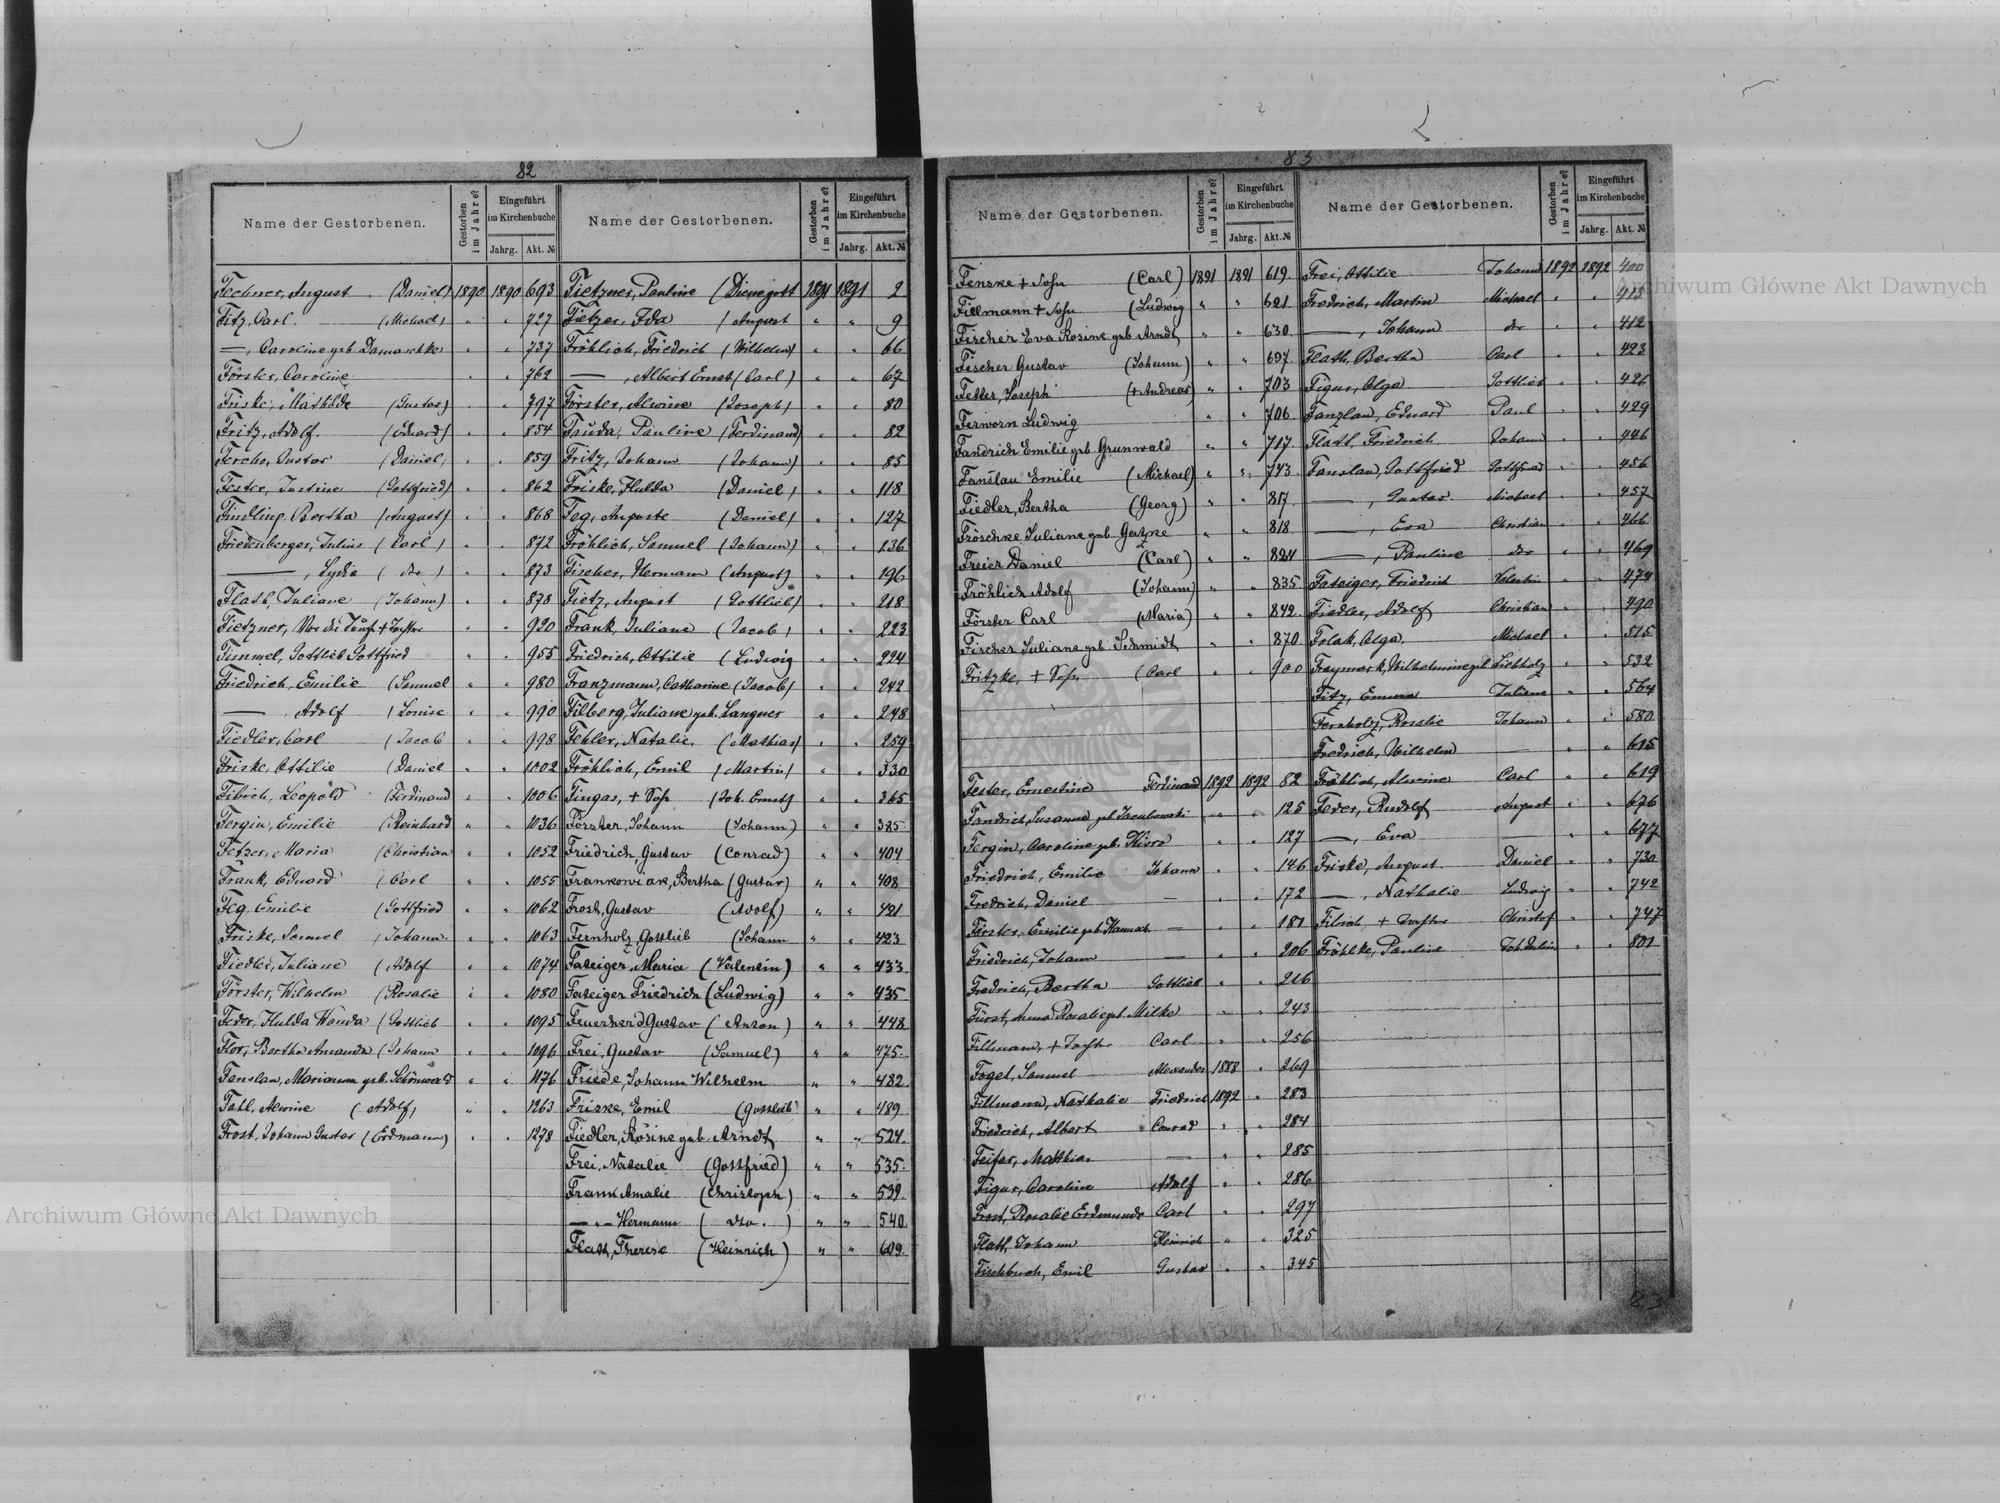 82
Name der Gestorbenen. Gestorben im Jahre? Eingeführt im Kirchenbuche Jahrg. Akt. №
Fechner, August (Daniel) 1890 1890 693
Fitz, Carl (Michael) " " 727
—, Caroline geb. Damaschke " " 737
Förster, Caroline " " 762
Friske, Mathilde (Gustav) " " 797
Fritz, Adolf (Eduard) " " 854
Fercho, Gustav (Daniel) " " 859
Fester, Justine (Gottfried) " " 862
Findling, Bertha (August) " " 868
Friedenberger, Julius (Carl) " " 872
—, Lydia (do) " " 873
Flath, Juliane (Johann) " " 878
Fietzner, Vor der Taufe + Tochter " " 920
Fimmel, Gottlieb Gottfried " " 955
Friedrich, Emilie (Samuel " " 980
— Adolf (Louise " " 990
Fiedler, Carl (Jacob " " 998
Friske, Ottilie (Daniel " " 1002
Fibich, Leopold (Ferdinand " " 1006
Fergin, Emilie (Reinhard " " 1036
Fetzer, Maria (Christian " " 1052
Frank, Eduard (Carl " " 1055
Feg, Emilie (Gottfried " " 1062
Friske, Samuel (Johann " " 1063
Fiedler, Juliane (Adolf " " 1074
Förster, Wilhelm (Rosalie " " 1080
Feder, Hulda Wanda (Gottlieb " " 1095
Flor, Bertha Amanda (Johann " " 1096
Fanslau, Marianna geb. Schönwald " " 1176
Fahl, Alwine (Adolf) " " 1263
Frost, Johann Gustav (Erdmann) " " 1278
Name der Gestorbenen. Gestorben im Jahre? Eingeführt im Kirchenbuche Jahrg. Akt. №
Fietzner, Pauline (Dienegott 1891 1891 2
Fietzer, Ida (August " " 9
Fröhlich, Friedrich (Wilhelm) " " 66
—, Albert Ernst (Carl) " " 67
Förster, Alwine (Joseph) " " 80
Fauda, Pauline (Ferdinand) " " 82
Fritz, Johann (Johann) " " 85
Friske, Hulda (Daniel) " " 118
Feg, Auguste (Daniel) " " 127
Fröhlich, Samuel (Johann) " " 136
Fischer, Hermann (August) " " 196
Fietz, August (Gottlieb) " " 218
Frank, Juliane (Jacob) " " 223
Friedrich, Ottilie (Ludwig " " 224
Franzmann, Catharine (Jacob) " " 242
Filberg, Juliane geb. Langner " " 248
Fehler, Natalie (Mathias) " " 259
Fröhlich, Emil (Martin) " " 330
Fingas, + Sohn (Joh. Ernst) " " 365
Förster, Johann (Johann) " " 385
Friedrich, Gustav (Conrad) " " 404
Frankowiak, Bertha (Gustav) " " 408
Frost, Gustav (Adolf) " " 421
Fernholz, Gottlieb (Johann " " 423
Fateiger, Maria (Valentin) " " 433
Fateiger Friedrich (Ludwig) " " 435
Feuerherd Gustav (Anton) " " 448
Frei, Gustav (Samuel) " " 475
Friede, Johann Wilhelm " " 482
Friske, Emil (Gottlieb) " " 489
Fiedler, Rosine geb. Arndt " " 524
Frei, Natalie (Gottfried) " " 535
Frank Amalie (Christoph) " " 539
— " — Hermann (do.) " " 540
Flath, Therese (Heinrich) " " 609
83
Name der Gestorbenen. Gestorben im Jahre? Eingeführt im Kirchenbuche Jahrg. Akt. №
Fenske + Sohn (Carl) 1891 1891 619
Fillmann + Sohn (Ludwig " " 621
Fischer Eva Rosine geb. Arndt " " 630
Fischer Gustav (Johann) " " 697
Feller, Joseph (+ Andreas) " " 703
Ferworn Ludwig " " 706
Fandrich Emilie geb. Grunwald " " 717
Fanslau Emilie (Michael) " " 743
Fiedler, Bertha (Georg) " " 817
Fröschke Juliane geb. Gatzke " " 818
Freier Daniel (Carl) " " 824
Fröhlich Adolf (Johann) " " 835
Förster Carl (Maria) " " 842
Fischer Juliane geb. Schmidt " " 870
Fritzke, + Sohn (Carl " " 900
Fester, Ernestine Ferdinand 1892 1892 82
Fandrich, Susanna geb. Jacubowski " " 125
Fergin, Caroline geb. " " 127
Friedrich, Emilie Johann " " 146
Fredrich, Daniel — " " 172
Förster, Emilie geb. — " " 181
Friedrich, Johann — " " 206
Fredrich, Bertha Gottlieb " " 216
Fürst, Anna Rosalie geb. Milke " " 243
Fillmann, + Tochter Carl " " 256
Fogel, Samuel Alexander 1888 " 269
Fillmann, Nathalie Friedrich 1892 " 283
Friedrich, Albert Conrad " " 284
Feifer, Mathias — " " 285
Figur, Caroline Adolf " " 286
Frost, Rosalie Erdmunde Carl " " 297
Flath, Johann Heinrich " " 325
Fischbuch, Emil Gustav " " 345
Name der Gestorbenen. Gestorben im Jahre? Eingeführt im Kirchenbuche Jahrg. Akt. №
Frei, Ottilie Johann 1892 1892 400
Fredrich, Martin Michael " "
—, Johann do " " 412
Flath, Bertha Carl " " 423
Figur, Olga Gottlieb " " 426
Fanzlau, Eduard Paul " " 429
Flath, Friedrich Johann " " 446
Fanslau, Gottfried Gottfried " " 456
—, Gustav Michael " " 457
—, Eva Christian " " 466
—, Pauline do " " 469
Fateiger, Friedrich Valentin " " 474
Fiedler, Adolf Christian " " 490
Folak, Olga Michael " " 515
Fraymark, Wilhelmine geb. Liebholz " " 532
Fitz, Emma Juliana " " 564
Fernholz, Rosalie Johann " " 580
Fredrich, Wilhelm — " " 615
Fröhlich, Alwine Carl " " 619
Feder, Rudolf August " " 676
—, Eva — " " 677
Friske, August Daniel " " 730
—, Nathalie Ludwig " " 742
Fibich, + Tochter Christof " " 747
Fröhlke, Pauline Joh. Julius " " 801
83
Archiwum Główne Akt Dawnych
Archiwum Główne Akt Dawnych